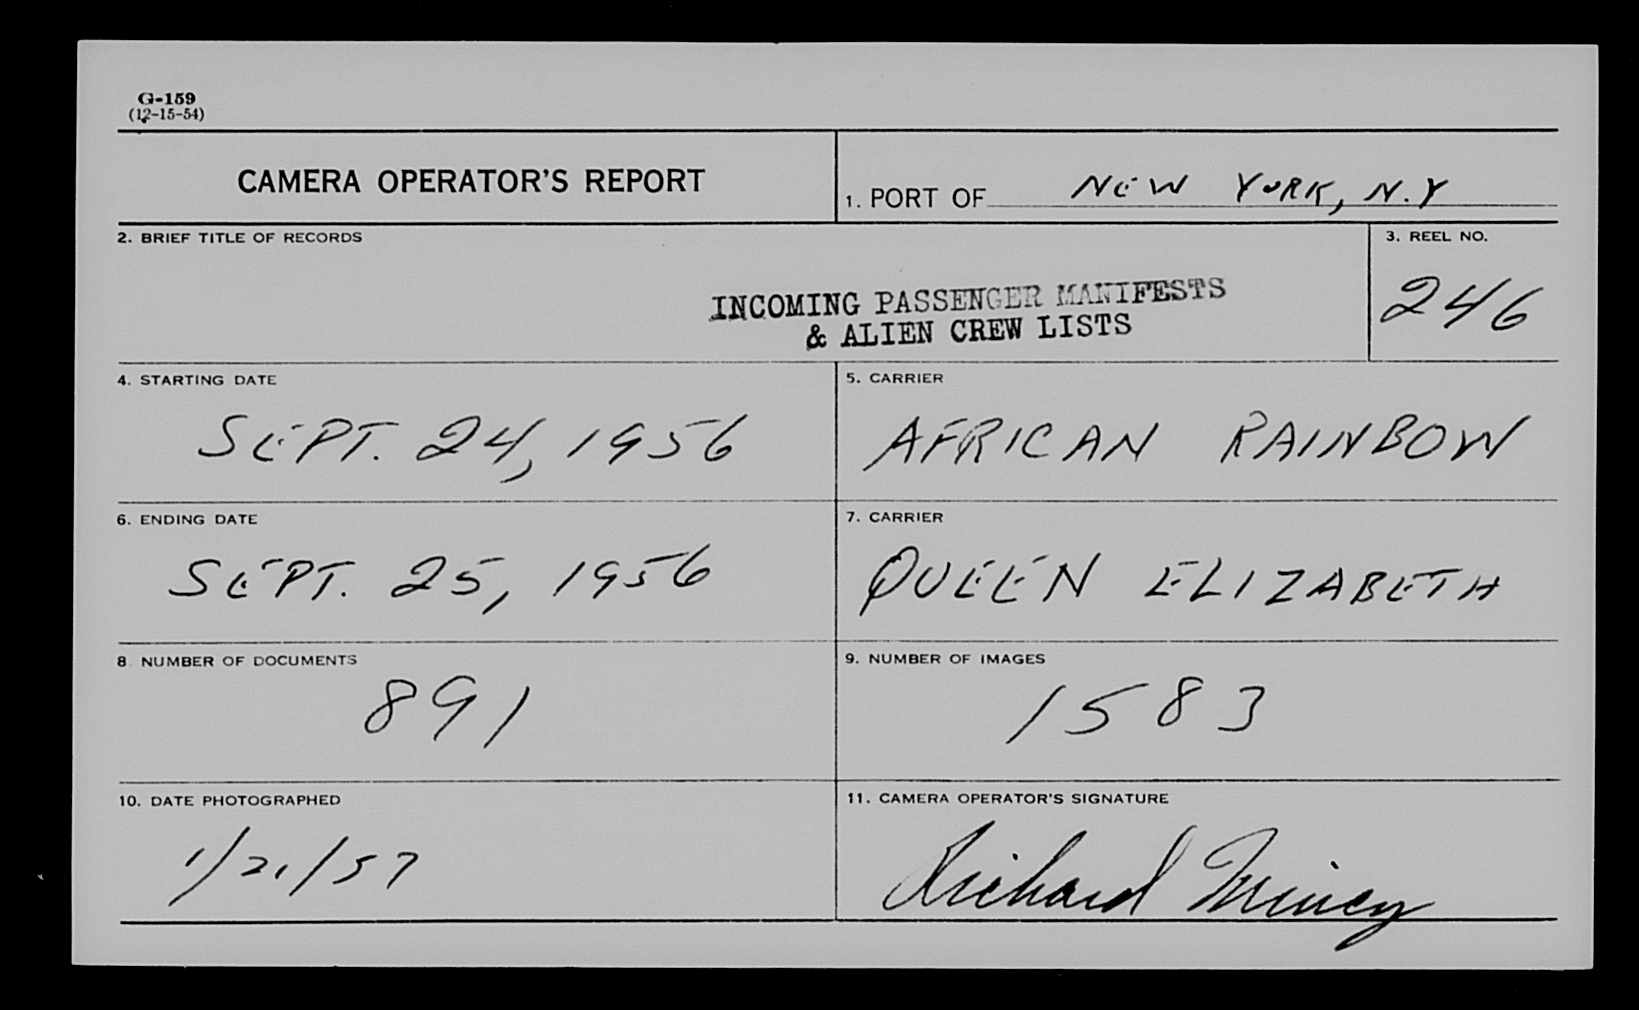 G-159
(12-15-54)
CAMERA OPERATOR'S REPORT
1. PORT OF NEW YORK, N.Y
2. BRIEF TITLE OF RECORDS
INCOMING PASSENGER MANIFESTS
& ALIEN CREW LISTS
3. REEL NO.
246
4. STARTING DATE
SEPT. 24, 1956
5. CARRIER
AFRICAN RAINBOW
6. ENDING DATE
SEPT. 25, 1956
7. CARRIER
QUEEN ELIZABETH
8 NUMBER OF DOCUMENTS
891
9. NUMBER OF IMAGES
1583
10. DATE PHOTOGRAPHED
1/21/57
11. CAMERA OPERATOR'S SIGNATURE
Richard